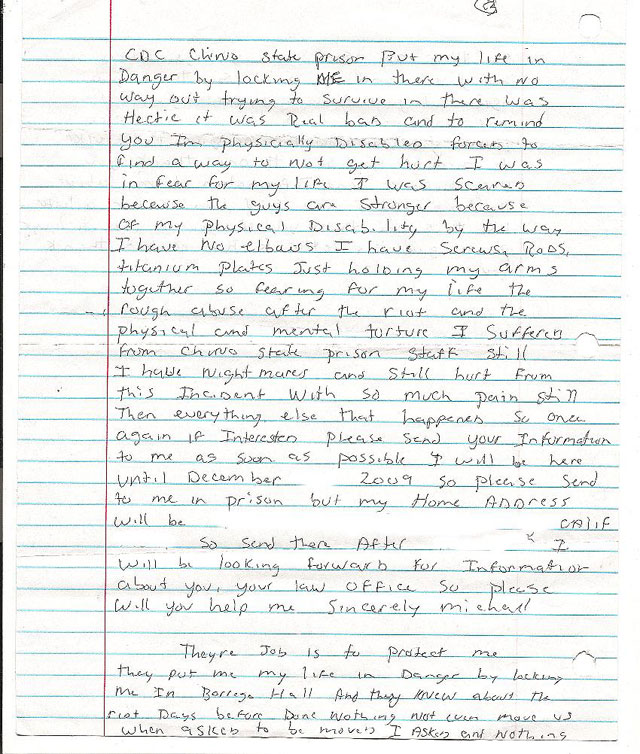 CDC Chino state prison Put my life in
Danger by locking ME in there with no
way out trying to survive in there was
Hectic it was Real bad and to remind
you Im physicially Disabled forced to
find a way to not get hurt I was
in fear for my life I was Scared
because the guys are Stronger because
of my physical Disability by the way
I have no elbows I have Screws, Rods,
titanium plates Just holding my arms
together so fearing for my life the
rough abuse after the riot and the
physical and mental torture I Suffered
from Chino State prison Staff Still
I have nightmares and Still hurt From
this Incident with so much pain still
Then everything else that happened So once
again if Interested please Send your Information
to me as soon as possible I will be here
until December 2009 so please Send
to me in prison but my Home Address
will be CALIF
So Send there After I
will be looking forward for Information
about you, your law office So please
will you help me Sincerely michall
Theyre Job is to protect me
they put me my life in Danger by locking
me In Borrego Hall And they knew about the
riot Days before Done Nothing not even move us
when asked to be moved I Asked and nothing